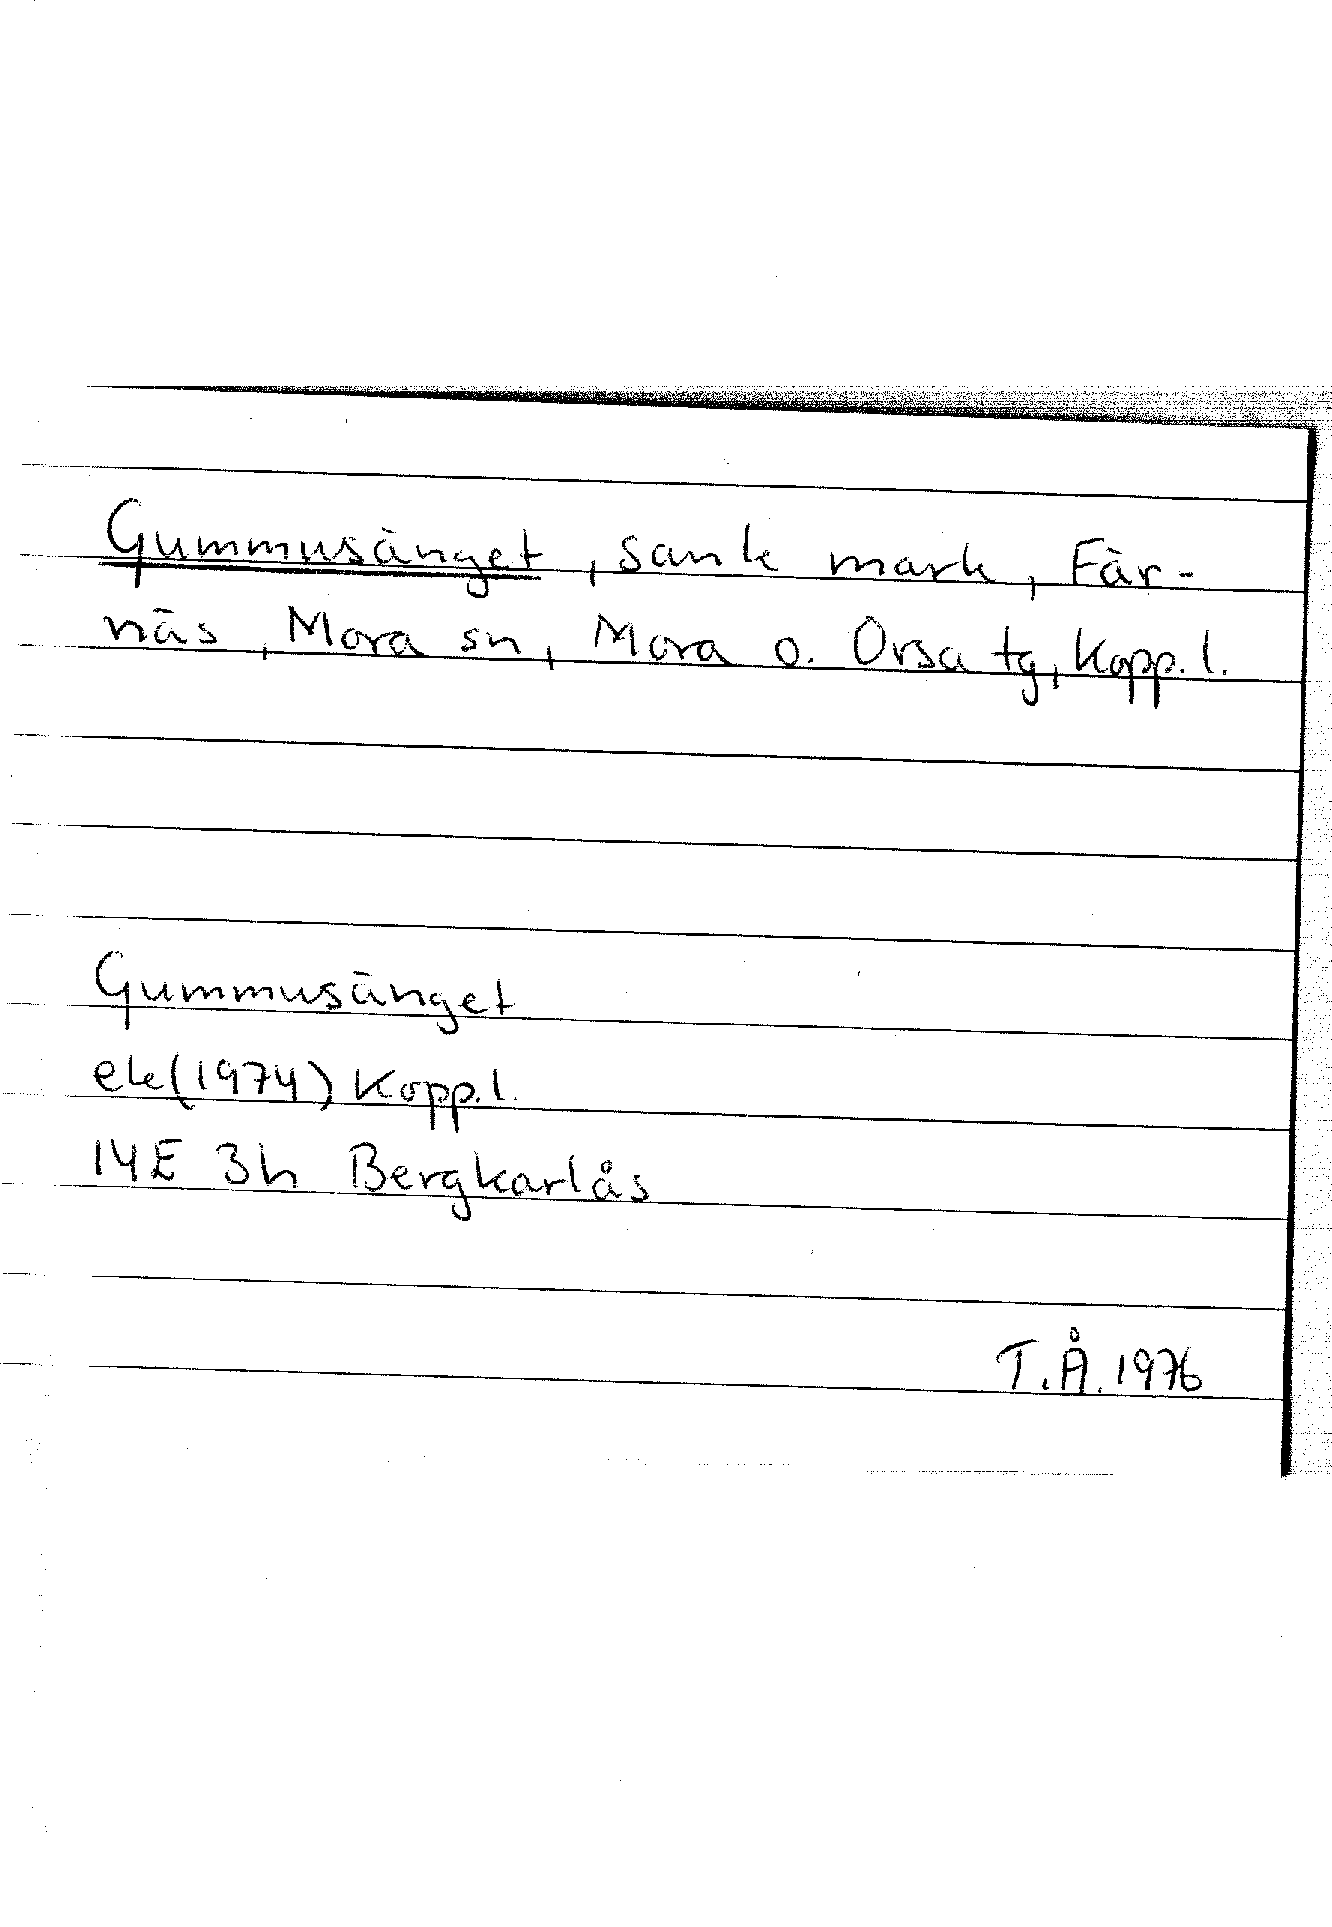 Gummusänget, sank mark, Fär-
näs, Mora sn, Mora o. Orsa tg, Kopp. l.
Gummusänget
ek(1974) Kopp. l.
14E 3h Bergkarlås
T.Å. 1976